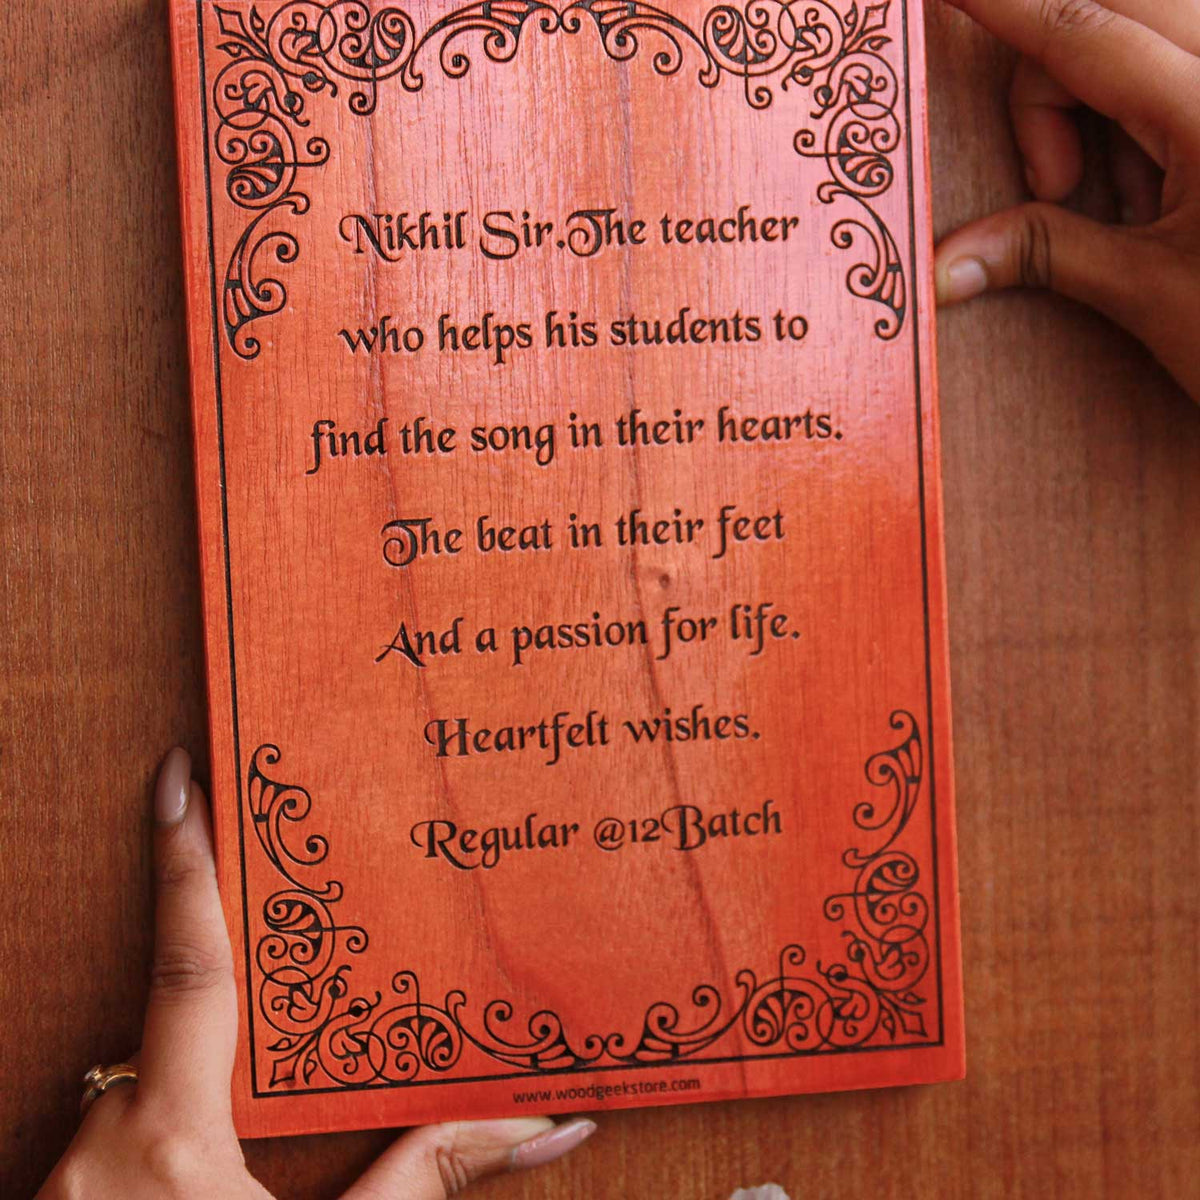 Nikhil Sir.The teacher
who helps his students to
find the song in their hearts.
The beat in their feet
And a passion for life.
Heartfelt wishes.
Regular @12Batch
www.woodgeekstore.com